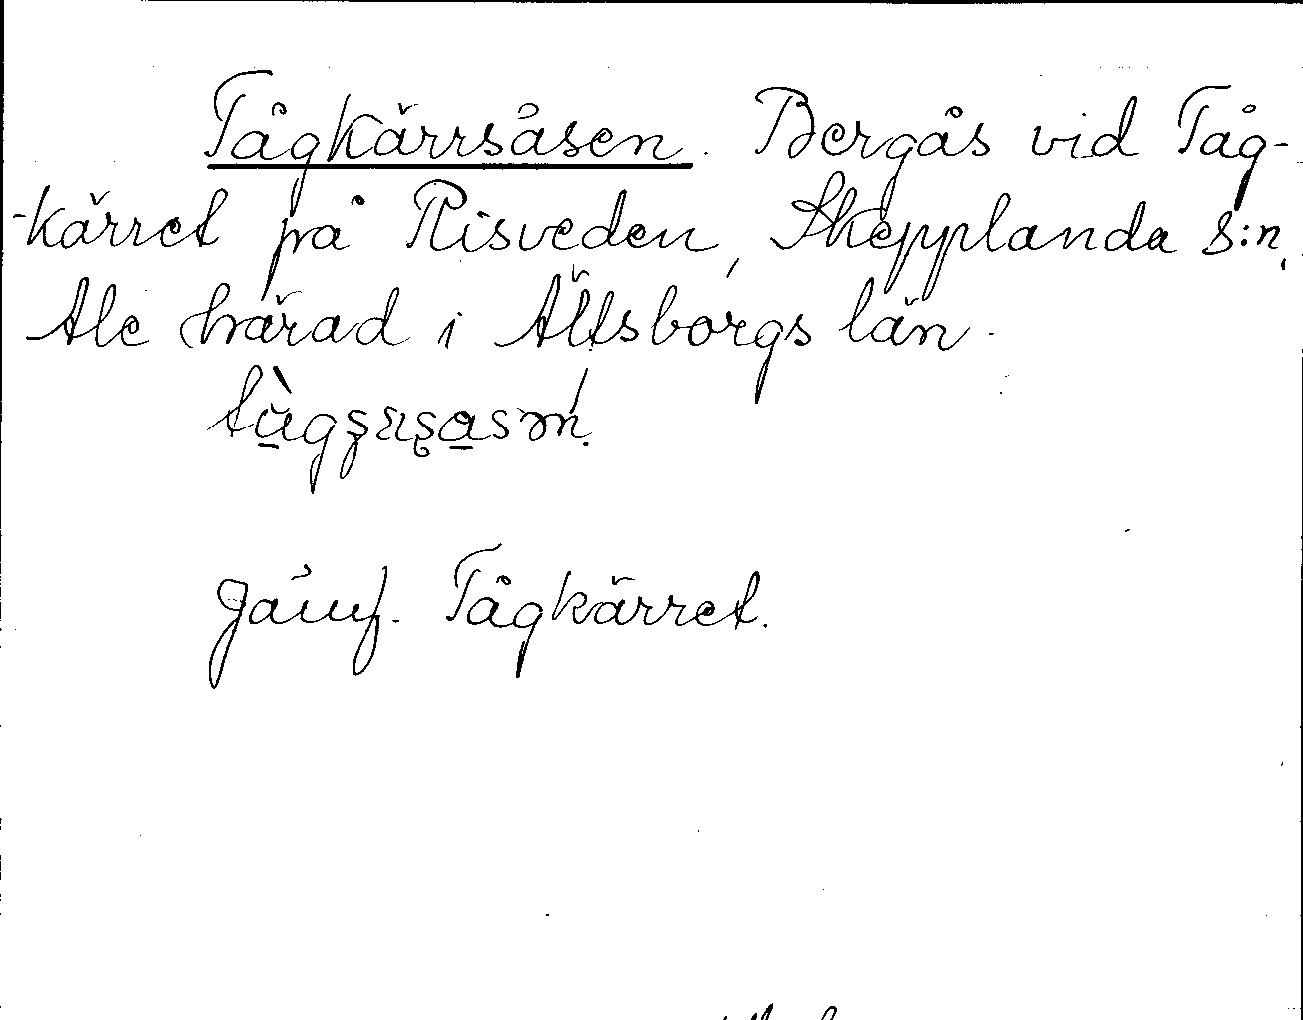 Tågkärrsåsen. Bergås vid Tåg-
-kärret på Risveden, Skepplanda s:n,
Ale härad i Älfsborgs län.
Jämf. Tågkärret.